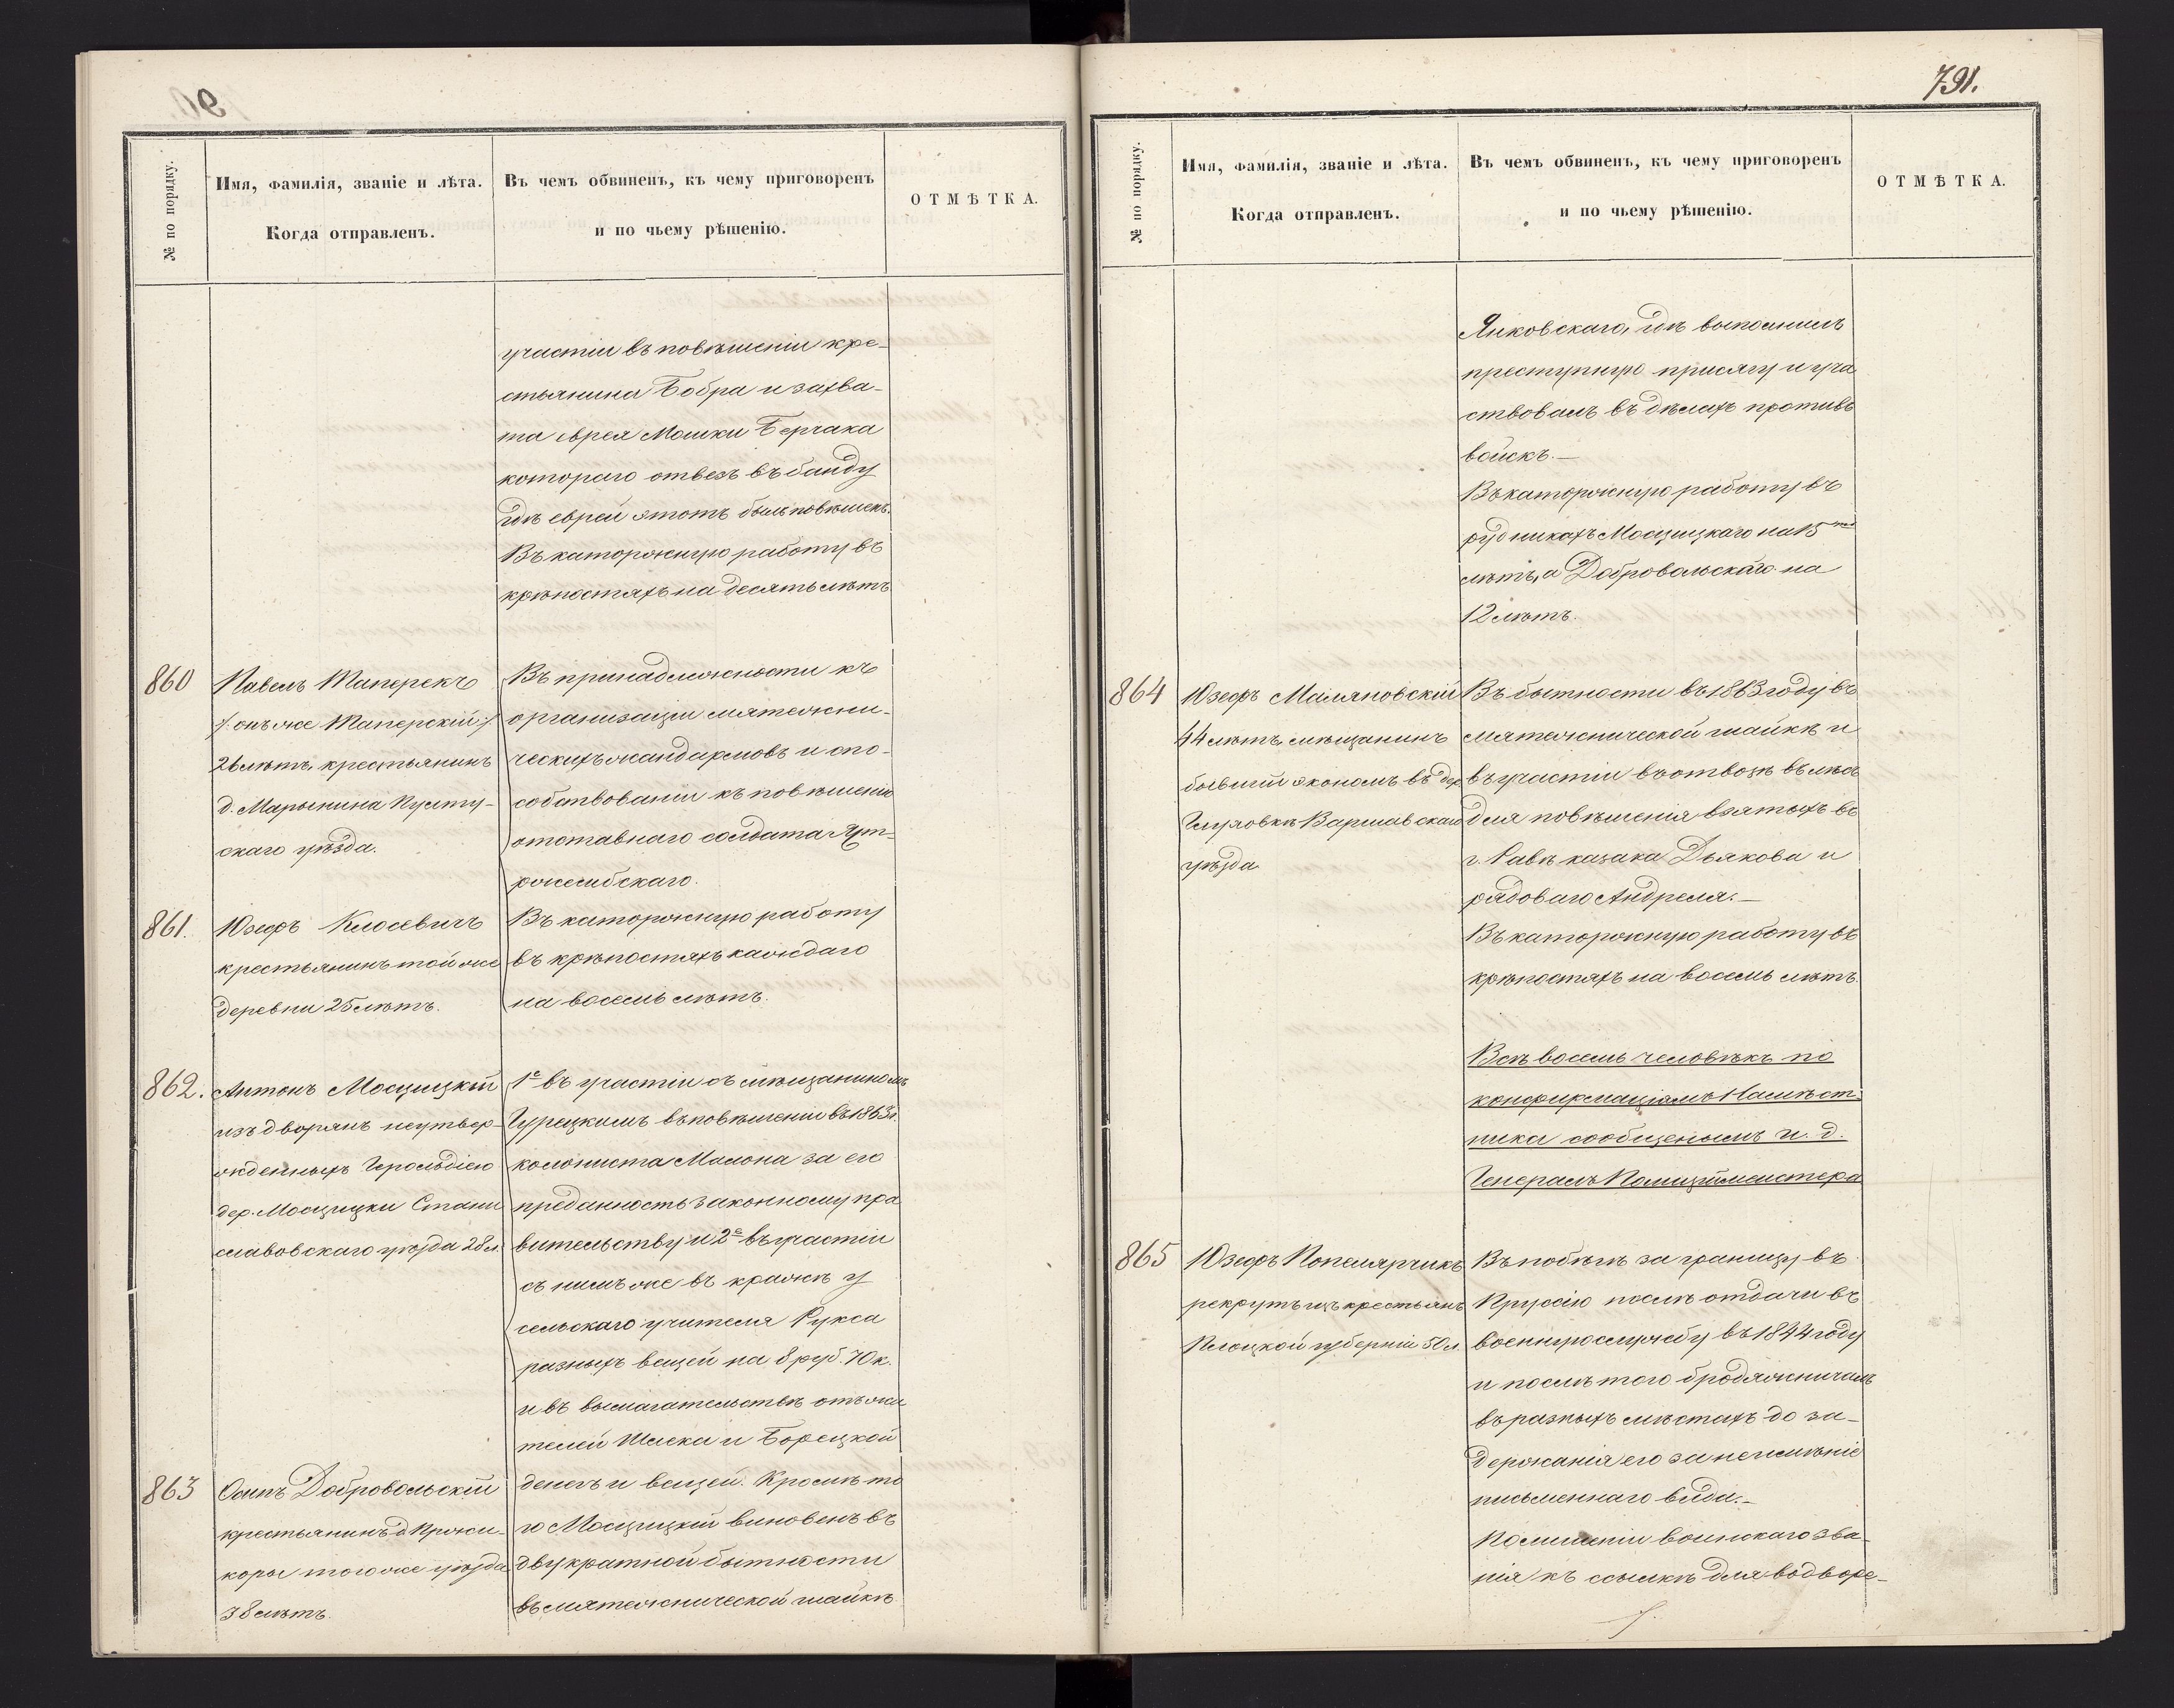 № по порядку.
Имя, фамилія, званіе и лѣта.
Когда отправленъ.
Въ чемъ обвиненъ, къ чему приговоренъ
и по чьему рѣшенію.
ОТМѢТКА.
участіи въ повѣшеніи кре-
стьянина Бобра и захва-
та еврея Мошки Берчака
котораго отвезъ въ банду
гдѣ еврей этотъ былъ повѣшенъ.
Въ каторжную работу въ
крѣпостяхъ на десять лѣтъ
860
Павелъ Таперекъ
/: онъ же Таперскій :/
26 лѣтъ, крестьянинъ
д. Марьянина Пулту-
скаго уѣзда.
Въ принадлежности къ
организаціи мятежни-
ческихъ жандармовъ и спо-
собствованіи къ повѣшенію
отставнаго солдата
861.
Юзефъ Клосевичъ
крестьянинъ той же
деревни 25 лѣтъ.
Въ каторжную работу
въ крѣпостяхъ каждаго
на восемь лѣтъ.
862.
Антонъ Мосцицкій
изъ дворянъ неутвер-
жденныхъ Герольдіею
дер. Мосцицки Стани
славовскаго уѣзда 28 л.
1е въ участіи съ мѣщаниномъ
Гурецкимъ въ повѣшеніи въ 1863 г.
колониста Малона за его
преданность законному пра
вительству и 2е въ участіи
съ нимъ же въ кражѣ у
сельскаго учителя Рукса
разныхъ вещей на 8 руб. 70 к.
и въ вымагательствѣ отъ жи
телей Шлека и Борецкой
863
Осипъ Добровольскій
крестьянинъ д.
коры того же уѣзда
38 лѣтъ.
денегъ и вещей. Кромѣ то
го Мосцицкій виновенъ въ
двукратной бытности
въ мятежнической шайкѣ
791.
№ по порядку.
Имя, фамилія, званіе и лѣта.
Когда отправленъ.
Въ чемъ обвиненъ, къ чему приговоренъ
и по чьему рѣшенію.
ОТМѢТКА.
Янковскаго, гдѣ выполнилъ
преступную присягу и уча
ствовалъ въ дѣлахъ противъ
войскъ.—
Въ каторжную работу въ
рудникахъ Мосцицкаго на 15
лѣтъ, а Добровольскаго на
12 лѣтъ.
864
Юзефъ Маляновскій
44 лѣтъ, мѣщанинъ
бывшій экономъ въ дер.
Варшавскаго
уѣзда
Въ бытности въ 1863 году въ
мятежнической шайкѣ и
въ участіи въ отвозѣ въ лѣсъ
для повѣшенія взятыхъ въ
г. Равѣ казака Дьякова и
рядоваго Андреля.—
Въ каторжную работу въ
крѣпостяхъ на восемь лѣтъ.
Всѣ восемь человѣкъ по
конфирмаціямъ Намѣст-
ника сообщенымъ и. д.
Генералъ Полиціймейстера
865
Юзефъ Попелярчикъ
рекрутъ изъ крестьянъ
Плоцкой губерніи 50 л.
Въ побѣгѣ за границу въ
Пруссію послѣ отдачи въ
военную службу въ 1844 году
и послѣ того бродяжничалъ
въ разныхъ мѣстахъ до за-
держанія его за неимѣніе
письменнаго вида.—
По лишеніи воинскаго зва-
нія къ ссылкѣ для водворе-